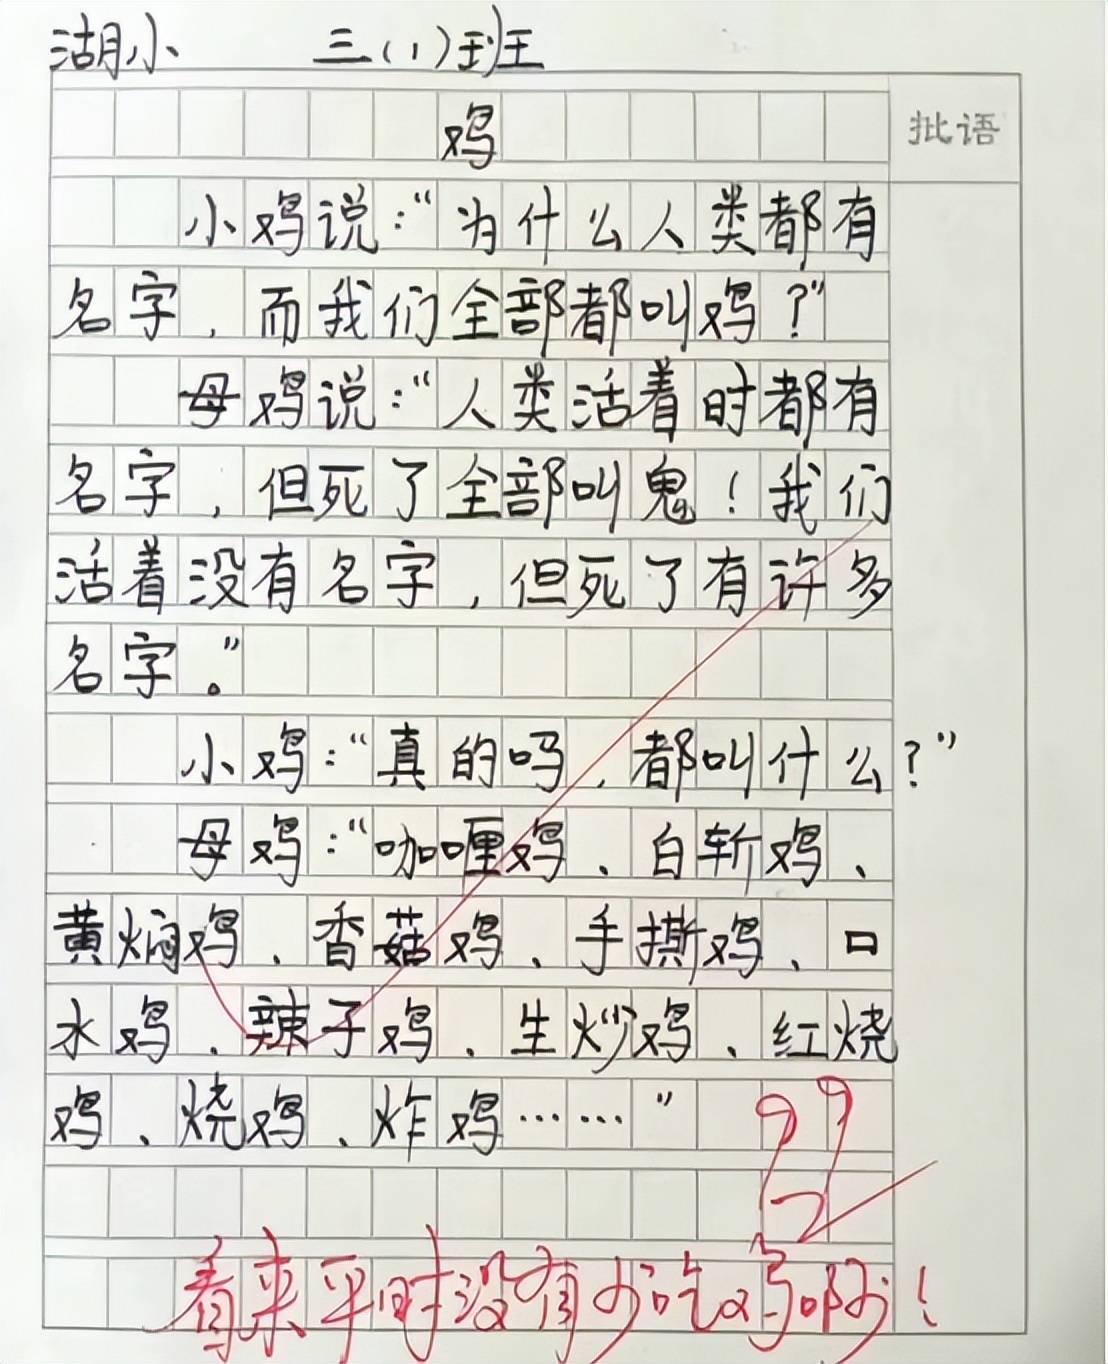 湖小 三(1)班
鸡
批语
小鸡说:“为什么人类都有
名字,而我们全部都叫鸡?”
母鸡说:“人类活着时都有
名字,但死了全部叫鬼!我们
活着没有名字,但死了有许多
名字。”
小鸡:“真的吗,都叫什么?”
母鸡:“咖喱鸡、白斩鸡、
黄焖鸡、香菇鸡、手撕鸡、口
水鸡、辣子鸡、生炒鸡、红烧
鸡、烧鸡、炸鸡……”
99
看来平时没有少吃鸡啊!